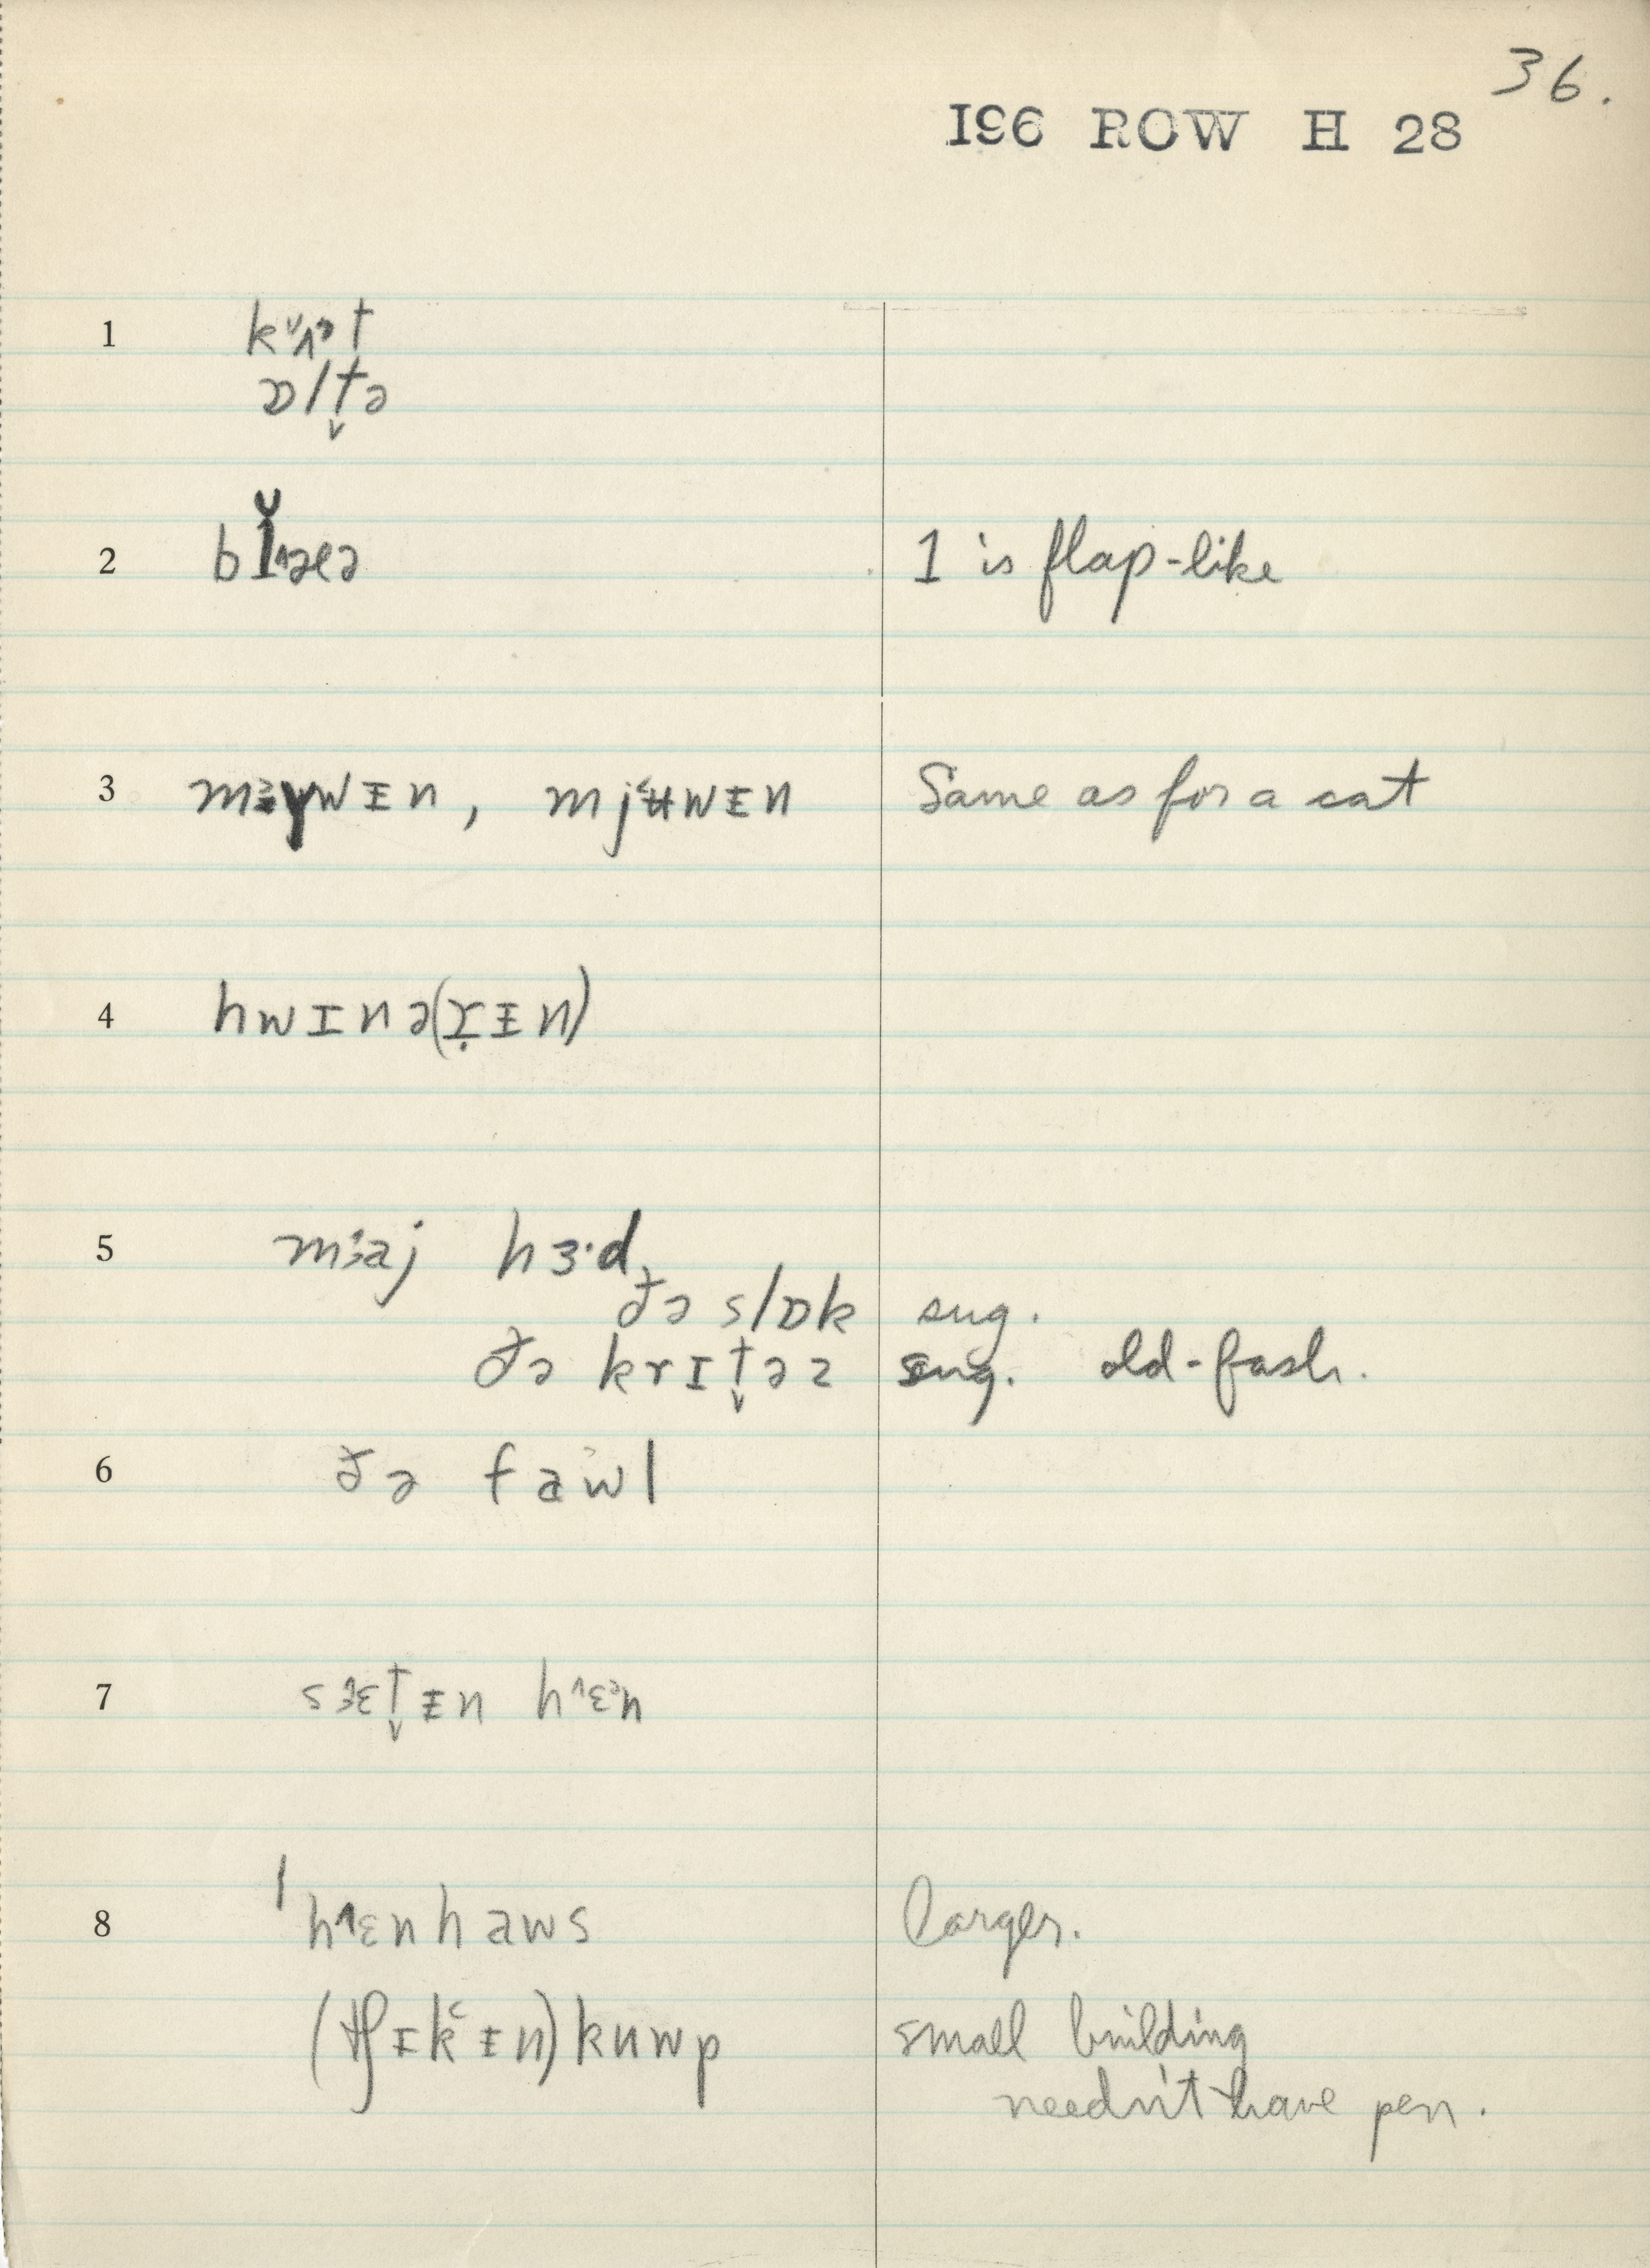 36.
I96 ROW H 28
1 kʌət
ɒltə̬
2 bɪ̆ələ 1 is flap-like
3 mɜɣwᵻn, mjʉwᵻn Same as for a cat
4 hwɪnə(ɪ̣ᵻn)
5 maj hɜ·d
ðə slɒk sug.
ðə krɪt̬əz sug. old-fash.
6 ðə fawl
7 sɛt̬ᵻn hɛən
8 ˈhɛnhaws larger.
(tʃɪkᵻn) kuwp small building
needn't have pen.